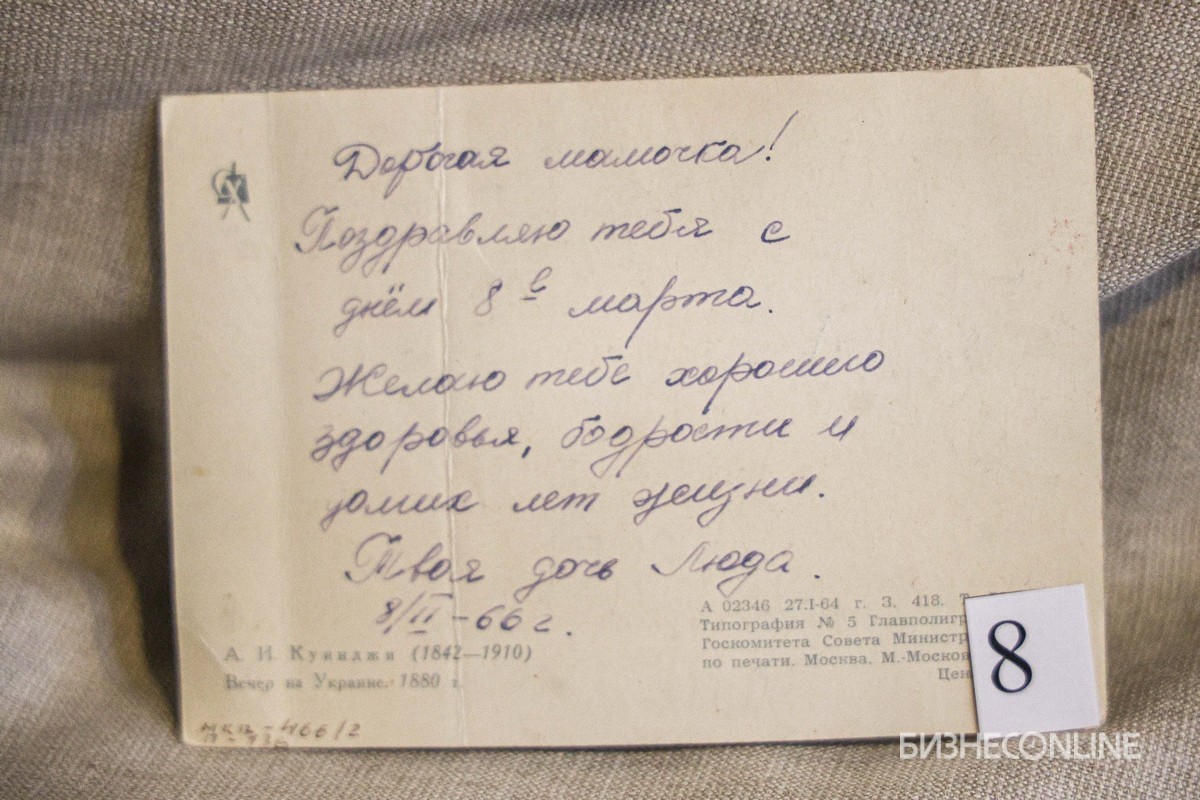 Дорогая мамочка!
Поздравляю тебя с
днём 8 е марта.
Желаю тебе хорошего
здоровья, бодрости и
долгих лет жизни.
Твоя дочь Люда.
8/II-66 г.
А. И. Куинджи (1842—1910)
Вечер на Украине. 1880 г.
А 02346 27.I-64 г. З. 418. Т
Типография № 5 Главполигр
Госкомитета Совета Министр
по печати. Москва. М.-Москов
Цен
8
466/2
БИЗНЕСONLINE